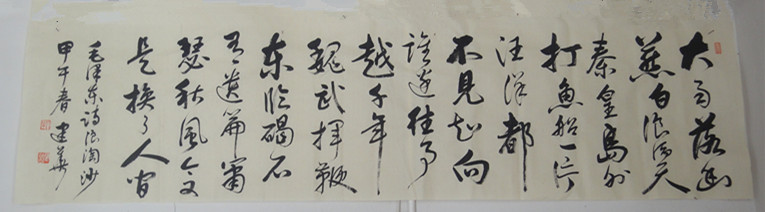 大雨落幽
燕白浪滔天
秦皇島外
打魚船一片
汪洋都
不見知向
誰邊往事
越千年
魏武揮鞭
东临碣石
有遗篇萧
瑟秋風今又
是换了人间
毛泽东诗浪淘沙
甲午春 建華